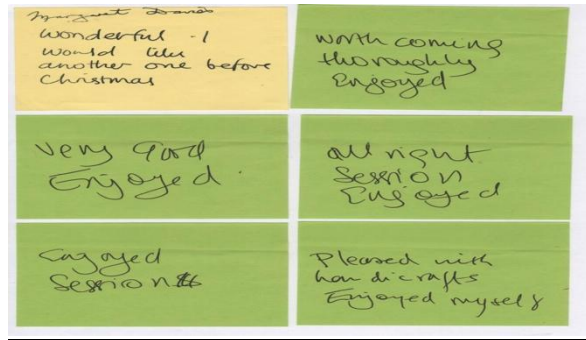 Margaret Davies
Wonderful. I
would like
another one before
Christmas
Worth coming
thoroughly
Enjoyed
Very Good
Enjoyed.
All right
Session
Enjoyed
Enjoyed
Session
Pleased with
handicrafts
Enjoyed myself